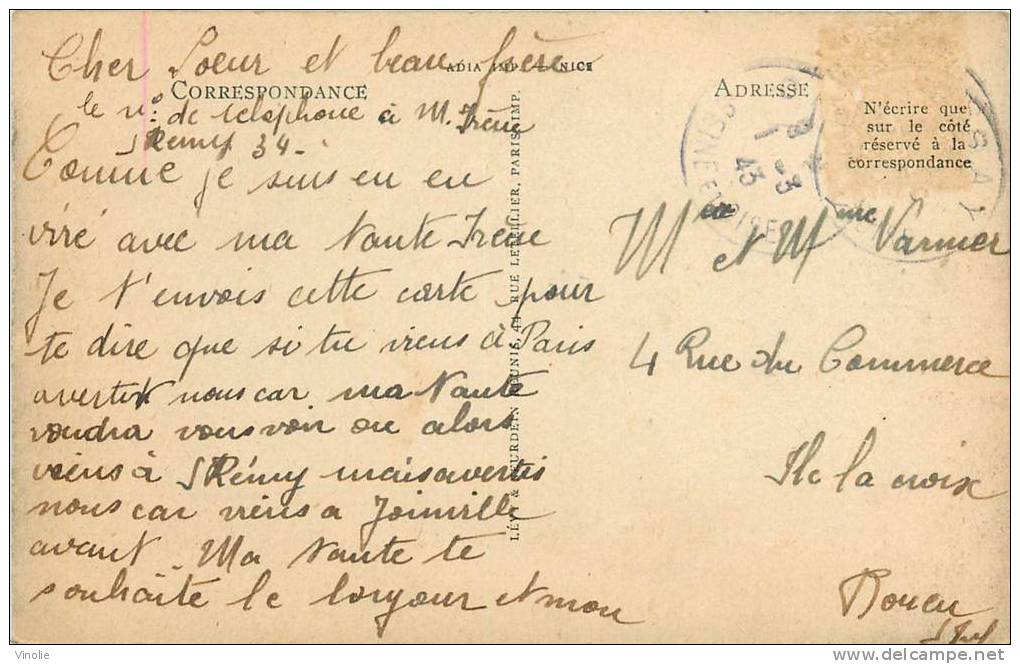 Cher Soeur et beau frère
ADIA IMP. — NICE
CORRESPONDANCE
le n° de téléphone à M. Irène
St Rémy 34 -
Comme je suis en en
viré avec ma Tante Irène
Je t'envois cette carte pour
te dire que si tu viens à Paris
avertir nous car ma Tante
voudra vous voir ou alors
viens à St Rémy mais avertis
nous car viens a Joinville
avant. Ma Tante te
souhaite le bonjour et mon
LÉVY & NEURDEIN RÉUNIS, 44, RUE LETELLIER, PARIS IMP.
ADRESSE
N'écrire que
sur le côté
réservé à la
correspondance
SEINE ET OISE
3
43
Mr et Mme Varnier
4 Rue du Commerce
Ile la croix
Rouen
S Inf
Vinolie
www.delcampe.net